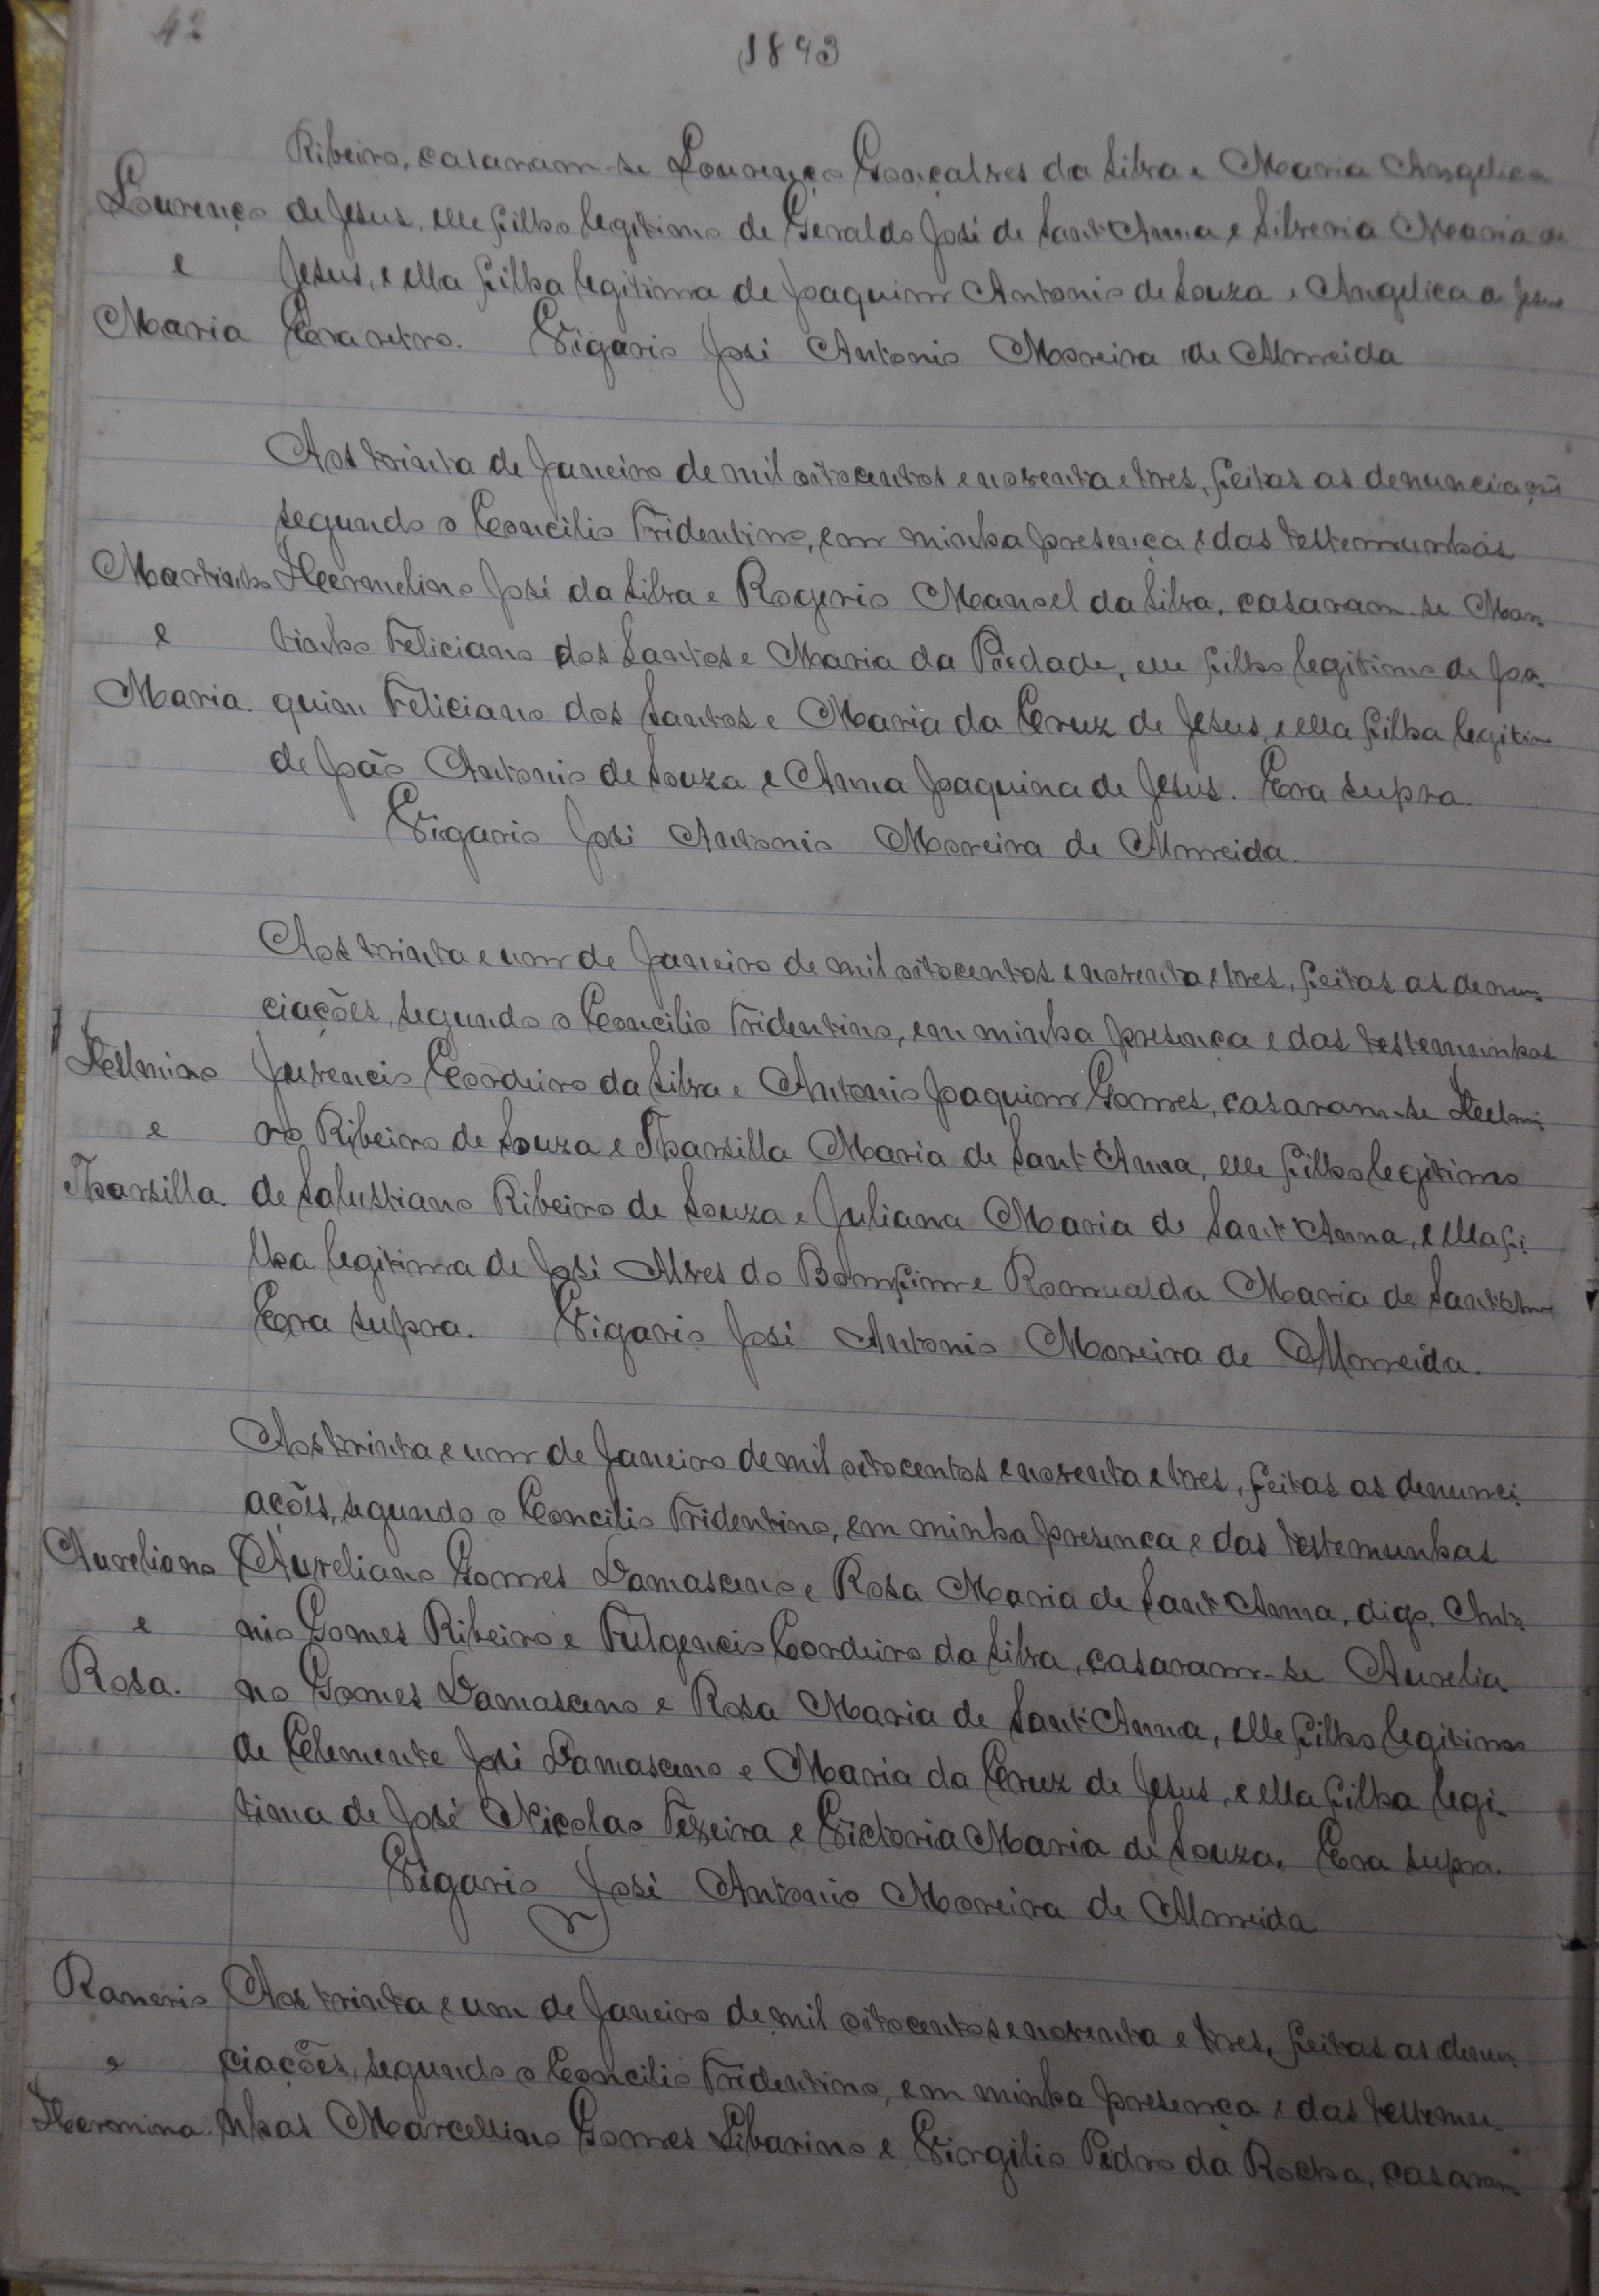 42
1893
Ribeiro, casaram-se Lourenço Gonçalves da Silva e Maria Angelica
Lourenço de Jesus, elle filho legitimo de Geraldo José de Sant'Anna e Silveria Maria de
e Jesus, e ella filha legitima de Joaquim Antonio de Souza e Angelica de Jesus
Maria Era retro. Vigario José Antonio Moreira de Almeida
Aos trinta de Janeiro de mil oitocentos e noventa e tres, feitas as denunciações
segundo o Concilio Tridentino, em minha presença e das testemunhas
Martinho Hermelino José da Silva e Rogerio Manoel da Silva, casaram-se Mar-
e tinho Feliciano dos Santos e Maria da Piedade, elle filho legitimo de Joa-
Maria. quim Feliciano dos Santos e Maria da Cruz de Jesus, e ella filha legitima
de João Antonio de Souza e Anna Joaquina de Jesus. Era supra.
Vigario José Antonio Moreira de Almeida.
Aos trinta e um de Janeiro de mil oitocentos e noventa e tres, feitas as denun-
ciações, segundo o Concilio Tridentino, em minha presença e das testemunhas
Juvencio Cordeiro da Silva e Antonio Joaquim Gomes, casaram-se
e no Ribeiro de Souza e Tharsilla Maria de Sant'Anna, elle filho legitimo
Tharsilla. de Salustiano Ribeiro de Souza e Juliana Maria de Sant'Anna, e ella fi-
lha legitima de José Alves do Bomfim e Romualda Maria de Sant'Anna
Era supra. Vigario José Antonio Moreira de Almeida.
Aos trinta e um de Janeiro de mil oitocentos e noventa e tres, feitas as denunci-
ações, segundo o Concilio Tridentino, em minha presença e das testemunhas
Aureliano Aureliano Gomes Damasceno e Rosa Maria de Sant'Anna, digo, Anto-
e nio Gomes Ribeiro e Fulgencio Cordeiro da Silva, casaram-se Aurelia-
Rosa. no Gomes Damasceno e Rosa Maria de Sant'Anna, elle filho legitimo
de Clemente José Damasceno e Maria da Cruz de Jesus, e ella filha legi-
tima de José Nicolao Texeira e Victoria Maria de Souza. Era supra.
Vigario José Antonio Moreira de Almeida
Ranerio Aos trinta e um de Janeiro de mil oitocentos e noventa e tres, feitas as denun-
e ciações, segundo o Concilio Tridentino, em minha presença e das testemu-
Hermina. nhas Marcellino Gomes Libarino e Virgilio Pedro da Rocha, casaram-